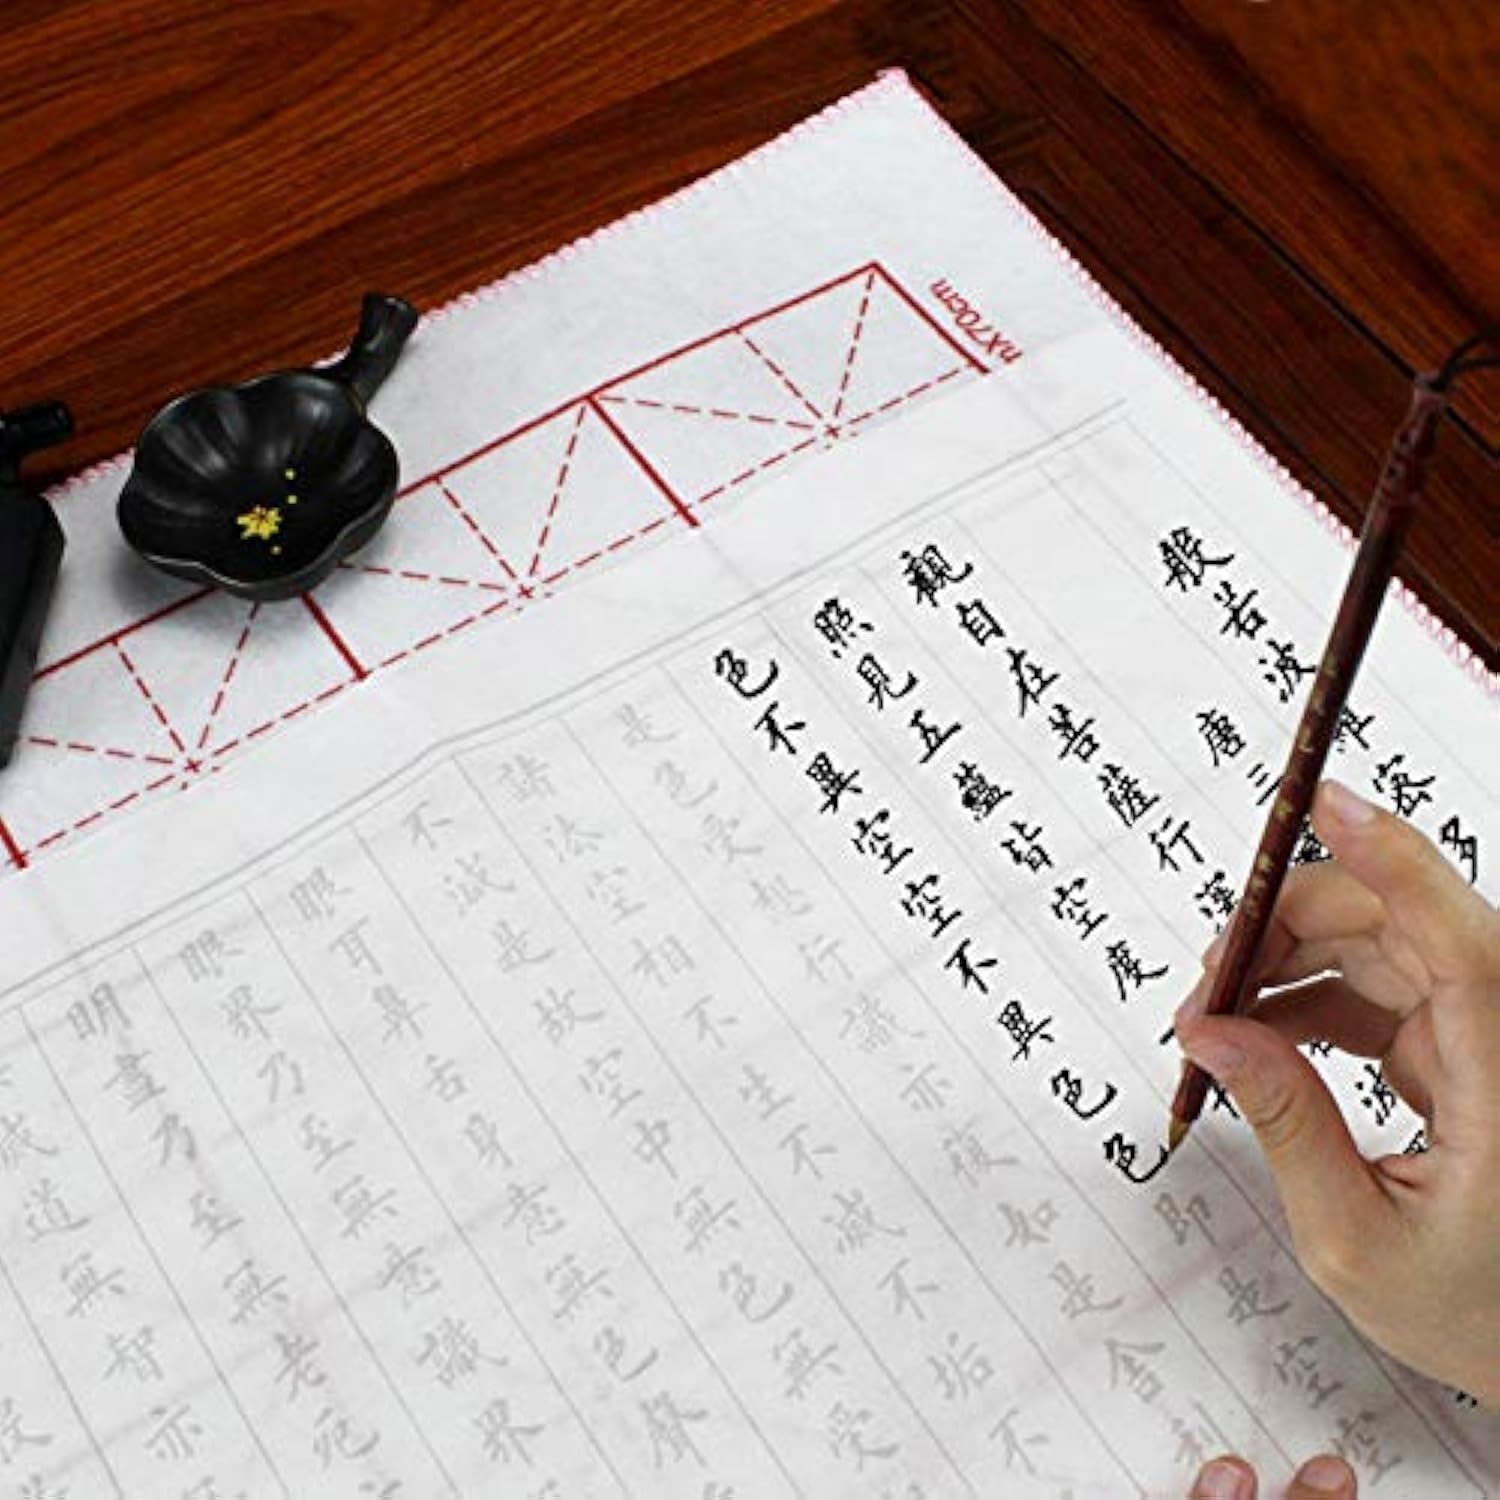 nX70cm
般若波羅密多
唐三藏
觀自在菩薩行深 波
照見五蘊皆空度一
色不異空空不異色色即是空空
是色受想行識亦復如是舍利
諸法空相不生不滅不垢不
不減是故空中無色無受
眼耳鼻舌身意無色聲
眼界乃至無意識界
明盡乃至無老死
滅道無智亦